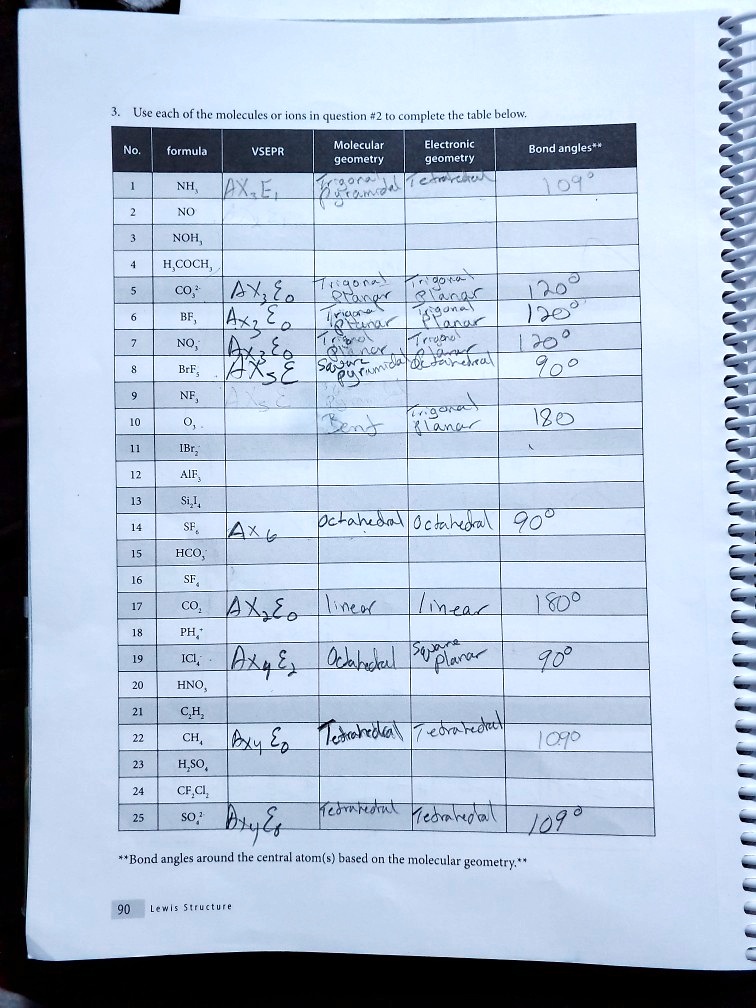 3. Use each of the molecules or ions in question #2 to complete the table below.
No. formula VSEPR Molecular geometry Electronic geometry Bond angles**
1 NH₃ AX₃E₁ Trigonal pyramidal Tetrahedral 109°
2 NO
3 NOH₃
4 H₃COCH₃
5 CO₃²⁻ AX₃E₀ Trigonal Planar Trigonal Planar 120°
6 BF₃ AX₃E₀ Trigonal Planar Trigonal Planar 120°
7 NO₃⁻ AX₃E₀ Trigonal Planar Trigonal Planar 120°
8 BrF₅ AX₅E Square pyramidal Octahedral 90°
9 NF₃
10 O₃ Bent Trigonal Planar 180
11 IBr₂⁻
12 AlF₃
13 Si₂I₄
14 SF₆ AX₆ Octahedral Octahedral 90°
15 HCO₃⁻
16 SF₄
17 CO₂ AX₂E₀ linear linear 180°
18 PH₄⁺
19 ICl₄⁻ AX₄E₂ Octahedral Square planar 90°
20 HNO₃
21 C₂H₂
22 CH₄ AX₄E₀ Tetrahedral Tetrahedral 109°
23 H₂SO₄
24 CF₂Cl₂
25 SO₄²⁻ AX₄E₀ Tetrahedral Tetrahedral 109°
**Bond angles around the central atom(s) based on the molecular geometry.**
90 Lewis Structure